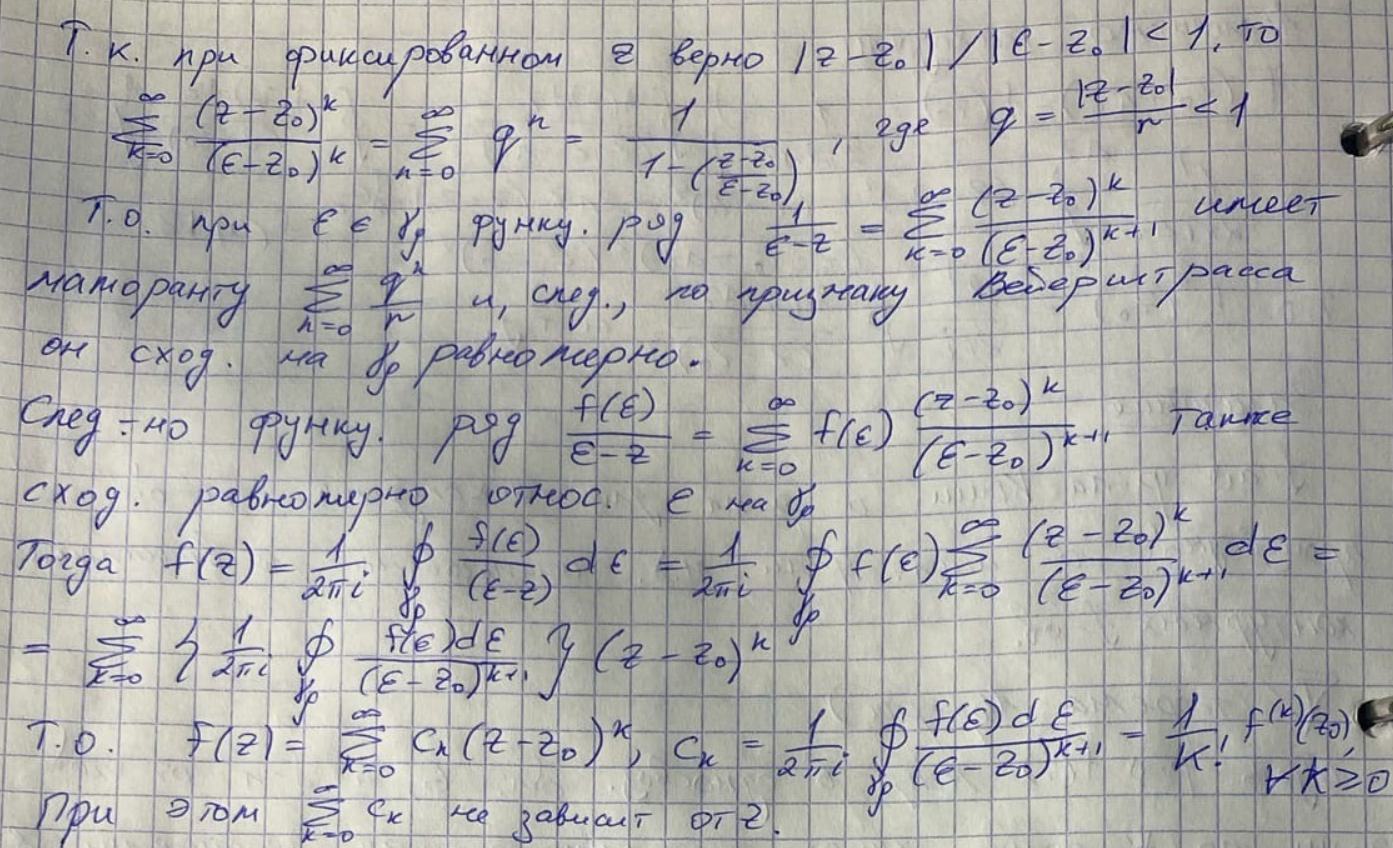 Т.к. при фиксированном z верно |z-z₀| / |ε-z₀| < 1, то
∑_{k=0}^{∞} (z-z₀)^k / (ε-z₀)^k = ∑_{n=0}^{∞} q^n = 1 / (1-((z-z₀)/(ε-z₀))), где q = |z-z₀| / r < 1
Т.о. при ε ∈ γρ функц. ряд 1/(ε-z) = ∑_{k=0}^{∞} (z-z₀)^k / (ε-z₀)^{k+1}, имеет
мажоранту ∑_{n=0}^{∞} q^n / r и, след., по признаку Вейерштрасса
он сход. на γρ равномерно.
След-но функц. ряд f(ε)/(ε-z) = ∑_{k=0}^{∞} f(ε) (z-z₀)^k / (ε-z₀)^{k+1} также
сход. равномерно относ. ε на γρ
Тогда f(z) = 1/(2πi) ∮_{γρ} f(ε)/(ε-z) dε = 1/(2πi) ∮_{γρ} f(ε) ∑_{k=0}^{∞} (z-z₀)^k / (ε-z₀)^{k+1} dε =
= ∑_{k=0}^{∞} { 1/(2πi) ∮_{γρ} f(ε)dε / (ε-z₀)^{k+1} } (z-z₀)^k
Т.о. f(z) = ∑_{k=0}^{∞} c_k (z-z₀)^k, c_k = 1/(2πi) ∮_{γρ} f(ε)dε / (ε-z₀)^{k+1} = 1/k! f^{(k)}(z₀), ∀k≥0
При этом ∑_{k=0}^{∞} c_k не зависит от z.